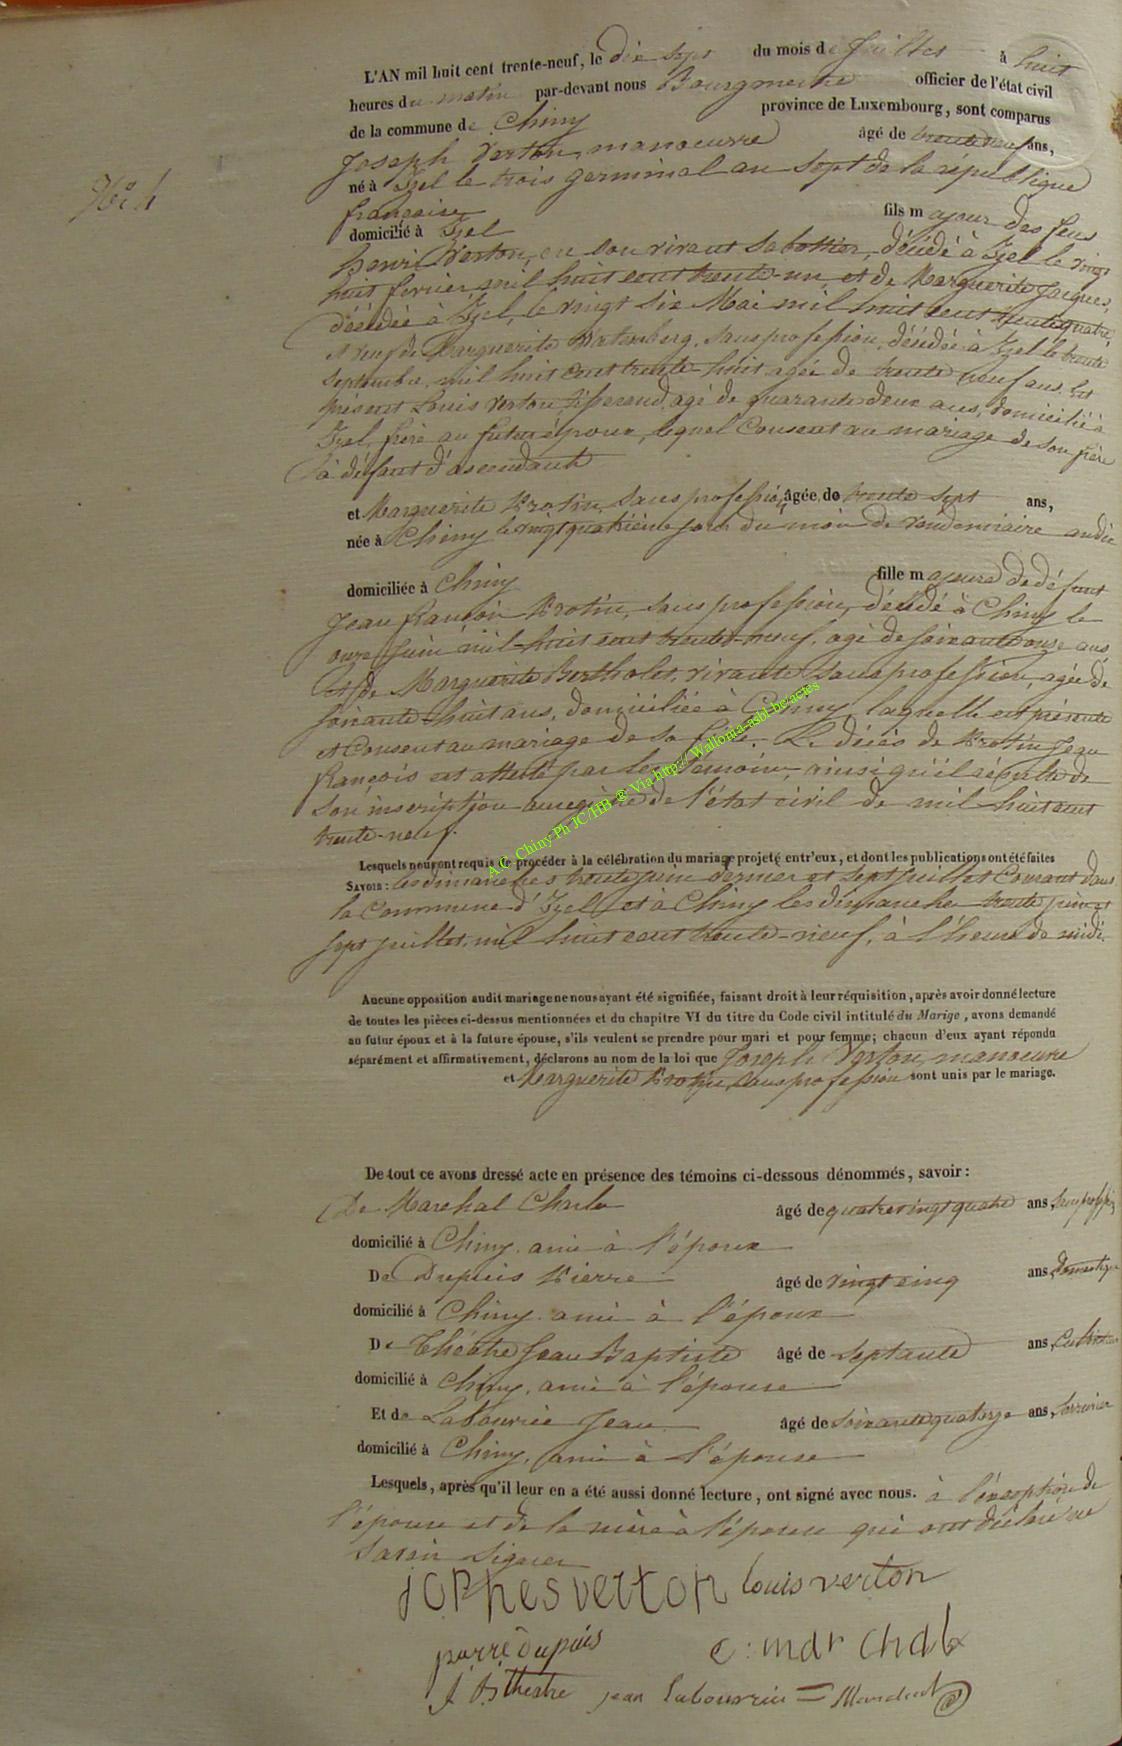 L'AN mil huit cent trente-neuf, le dix sept du mois de Juillet à huit
heures du matin par-devant nous Bourgmestre officier de l'état civil
de la commune de Chiny province de Luxembourg, sont comparus
Joseph Verton, manoeuvre âgé de trente neuf ans,
né à Izel le trois germinal an sept de la république
française
domicilié à Izel fils majeur des feus
henri Verton, en son vivant sabottier, décédé à Izel le vingt
huit fevrier mil huit cent trente-un, et de Marguerite Jacques,
décédée à Izel, le vingt six Mai mil huit cent trente quatre,
et veuf de Marguerite Watemberg, sans profession, décédée à Izel le trente
septembre, mil huit cent trente-huit agée de trente neuf ans. Est
présent Louis Verton, agé de quarante deux ans, domicilié à
Izel, frère au futur époux, lequel Consent au mariage de son frère
à défaut d'ascendants
et Marguerite Krotin, sans profession, âgée de trente sept ans,
née à Chiny le vingt quatrième jour du mois de vendemiaire an dix
domiciliée à Chiny fille majeure de défunt
Jean françois Krotin, sans profession, décédé à Chiny le
onze Juin mil-huit cent trente-neuf, agé de soixante onze ans
et de Marguerite Bertholet, vivante sans profession, agée de
soixante-huit ans, domiciliée à Chiny, laquelle est présente
et Consent au mariage de sa fille. Le décès de Krotin Jean
françois est attesté par les témoins, ainsi qu'il résulte de
son inscription au registre de l'état civil de mil huit cent
trente-neuf.
Lesquels nous ont requis de procéder à la célébration du mariage projeté entr'eux, et dont les publications ont été faites
SAVOIR : les dimanches trente juin dernier et sept juillet Courant dans
la Commune d'Izel et à Chiny les dimanches trente juin et
sept juillet, mil huit cent trente-neuf, à l'heure de midi.
Aucune opposition audit mariage ne nous ayant été signifiée, faisant droit à leur réquisition, après avoir donné lecture
de toutes les pièces ci-dessus mentionnées et du chapitre VI du titre du Code civil intitulé du Marige, avons demandé
au futur époux et à la future épouse, s'ils veulent se prendre pour mari et pour femme; chacun d'eux ayant répondu
séparément et affirmativement, déclarons au nom de la loi que Joseph Verton, manoeuvre
et Marguerite Krotin, sans profession sont unis par le mariage.
De tout ce avons dressé acte en présence des témoins ci-dessous dénommés, savoir :
De Marchal Charles âgé de quatre vingt quatre ans, sans profession
domicilié à Chiny, ami à l'époux
De Dupuis Pierre âgé de vingt cinq ans, domestique
domicilié à Chiny ami à l'époux
De Théâtre Jean Baptiste âgé de septante ans, Cultivateur
domicilié à Chiny, ami à l'épouse
Et de Labourrie Jean âgé de soixante quatorze ans, serrurier
domicilié à Chiny, ami à l'épouse
Lesquels, après qu'il leur en a été aussi donné lecture, ont signé avec nous. à l'exception de
l'épouse et de la mère à l'épouse qui ont déclaré ne
savoir signer
jophes verton louis verton
pierre dupuis c : marchal
J B thestre jean labourriee
A.C. Chiny Ph JC/HB ® Via http://Wallonia-asbl.be/actes